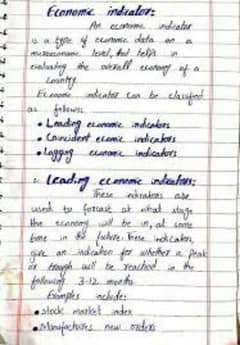 Economic indicators:
An economic indicator
is a type of economic data on a
microeconomic level, that helps in
evaluating the overall economy of a
country.
Economic indicator can be classified
as follows:
• Leading economic indicators
• Coincident economic indicators
• Lagging economic indicators
Leading economic indicators:
These indicators are
used to forcast at what stage
the economy will be in, at some
time in the future. These indicators,
give an indication for whether a peak
or trough will be reached in the
following 3-12 months.
Examples include:
• stock market index
• Manufactures new orders